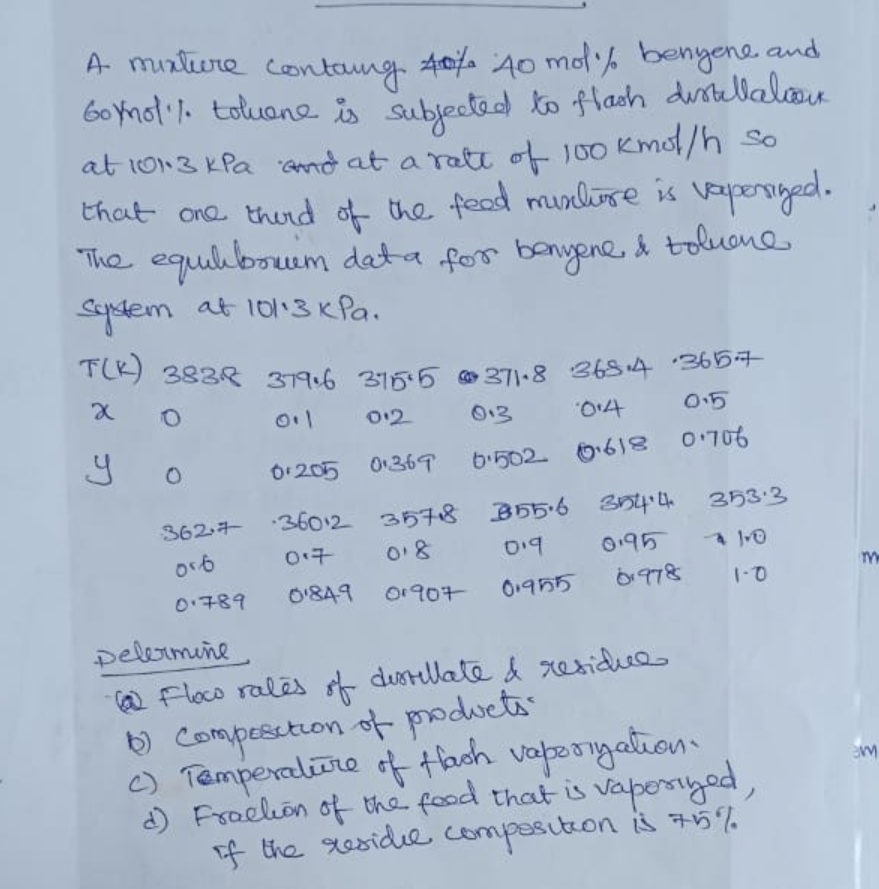 A mixture containg 40% 40 mol·% benzene and
60 mol·%. toluene is subjected to flash distillation
at 101.3 kPa and at a rate of 100 Kmol/h so
that one third of the feed mixture is vaporized.
The equilibrium data for benzene & toluene
system at 101.3 KPa.
T(K) 383.8 379.6 375.5 371.8 368.4 365.7
x 0 0.1 0.2 0.3 0.4 0.5
y 0 0.205 0.369 0.502 0.618 0.706
362.7 360.2 357.8 355.6 354.4 353.3
0.6 0.7 0.8 0.9 0.95 1.0
0.789 0.849 0.907 0.955 0.978 1.0
Determine
(a) Flow rates of distillate & residue
b) Composition of products.
c) Temperature of flash vaporization.
d) Fraction of the feed that is vaporized,
if the residue composition is 75%